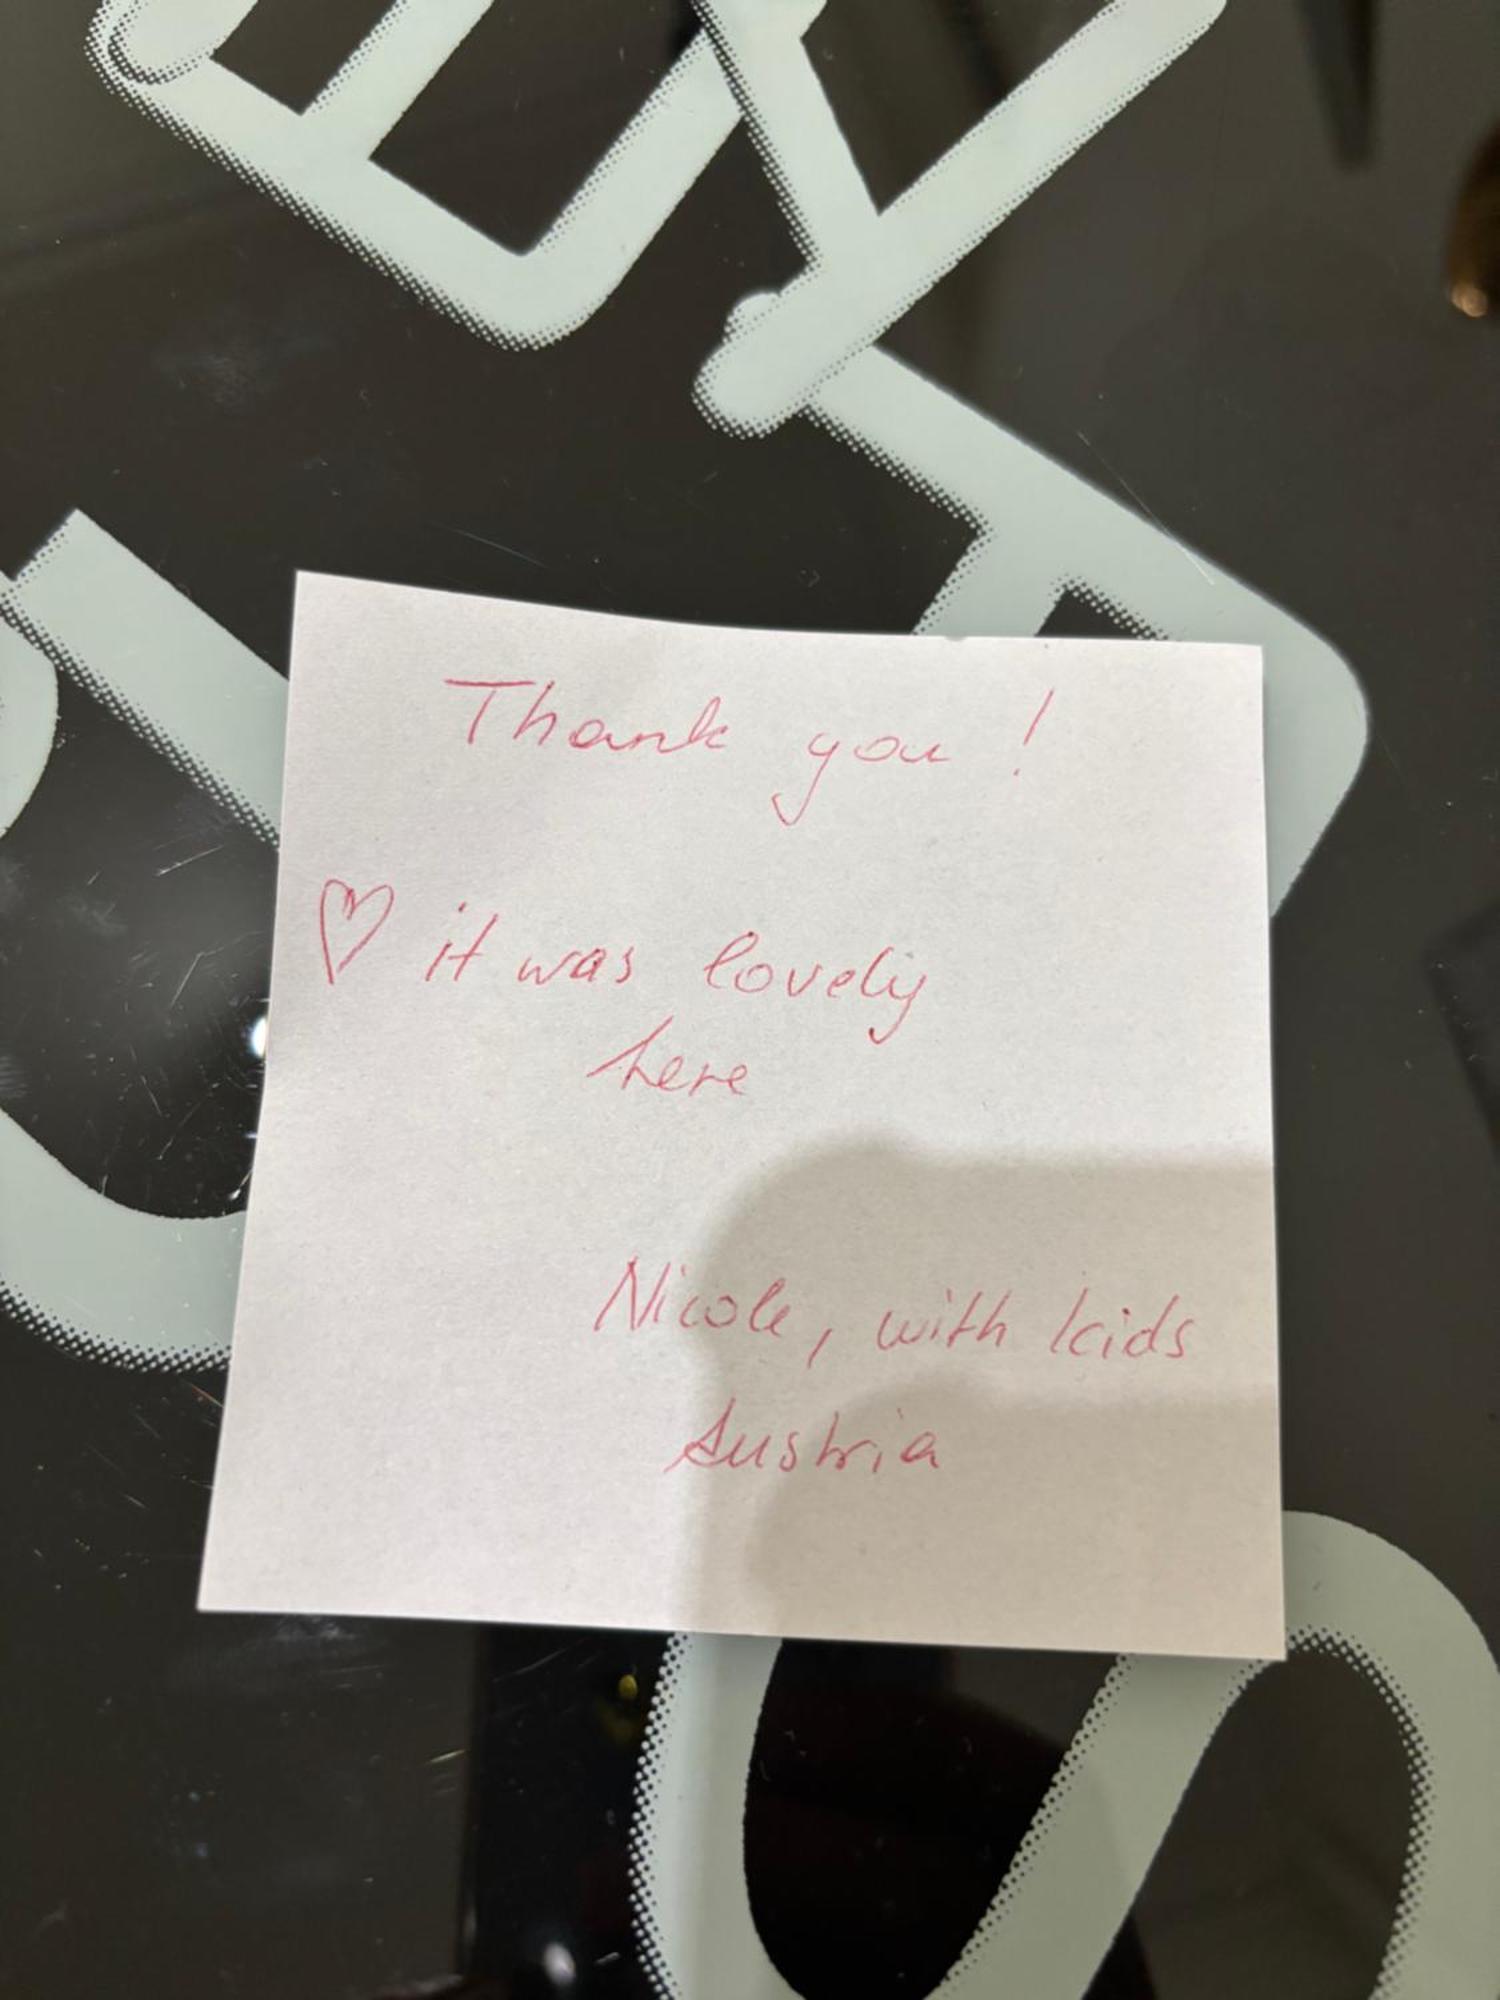 Thank you !
♡ it was lovely
here
Nicole, with kids
Austria